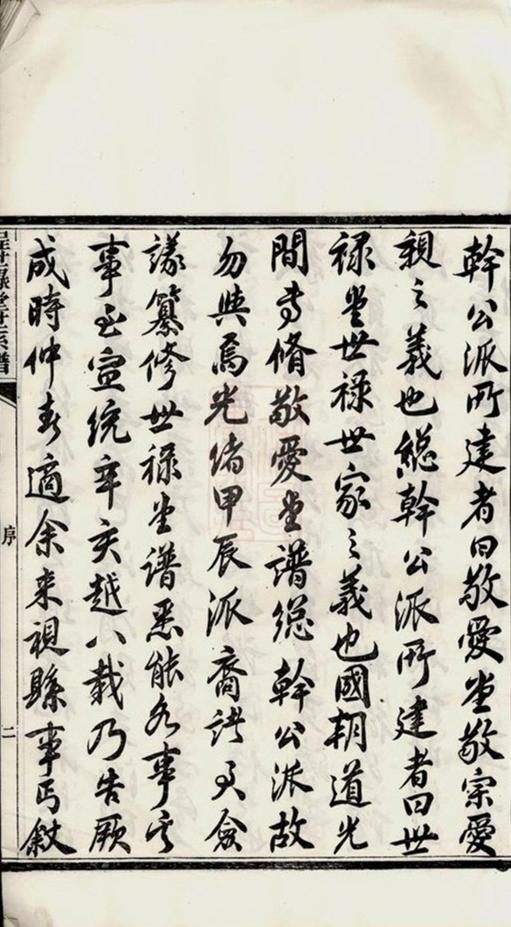 幹公派所建者曰敬愛堂敬宗愛
親之義也緫幹公派所建者曰世
禄堂世禄世家之義也國朝道光
間專脩敬愛堂譜緫幹公派故
勿與焉光緒甲辰派裔諸君僉
議纂修世禄堂譜悉能各事其
事至宣統辛亥越八載乃告厥
成時仲春適余来視縣事丐敘
世禄堂世系譜
序
二